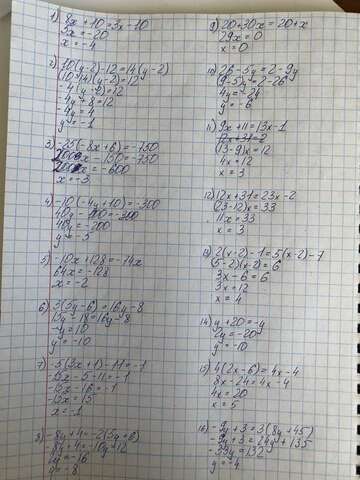 1) 8x + 10 = 3x - 10
5x = -20
x = -4
2) 10(y-2)-12=14(y-2)
(10-14)(y-2)=12
-4(y-2)=12
-4y+8=12
-4y=4
y=-1
3) -25(-8x+6)=-750
200x-150=-750
200x=-600
x=-3
4) -10(-4y+10)=-300
40y-100=-300
40y=-200
y=-5
5) -10x+128=-74x
64x=-128
x=-2
6) 3(5y-6)=16y-8
15y-18=16y-8
-y=10
y=-10
7) -5(3x+1)-11=-1
-15x-5-11=-1
-15x-16=-1
-15x=15
x=-1
8) -8y+4=-2(5y+6)
-8y+4=-10y-12
2y=-16
y=-8
9) 20+30x=20+x
29x=0
x=0
10) 26-5y=2-9y
(9-5)y=2-26
4y=-24
y=-6
11) 9x+11=13x-1
(13-9)x=12
4x=12
x=3
12) 12x+31=23x-2
(23-12)x=33
11x=33
x=3
13) 2(x-2)-1=5(x-2)-7
(5-2)(x-2)=6
3x-6=6
3x=12
x=4
14) y+20=-y
2y=-20
y=-10
15) 4(2x-6)=4x-4
8x-24=4x-4
4x=20
x=5
16) -9y+3=3(8y+45)
-9y+3=24y+135
-33y=132
y=-4